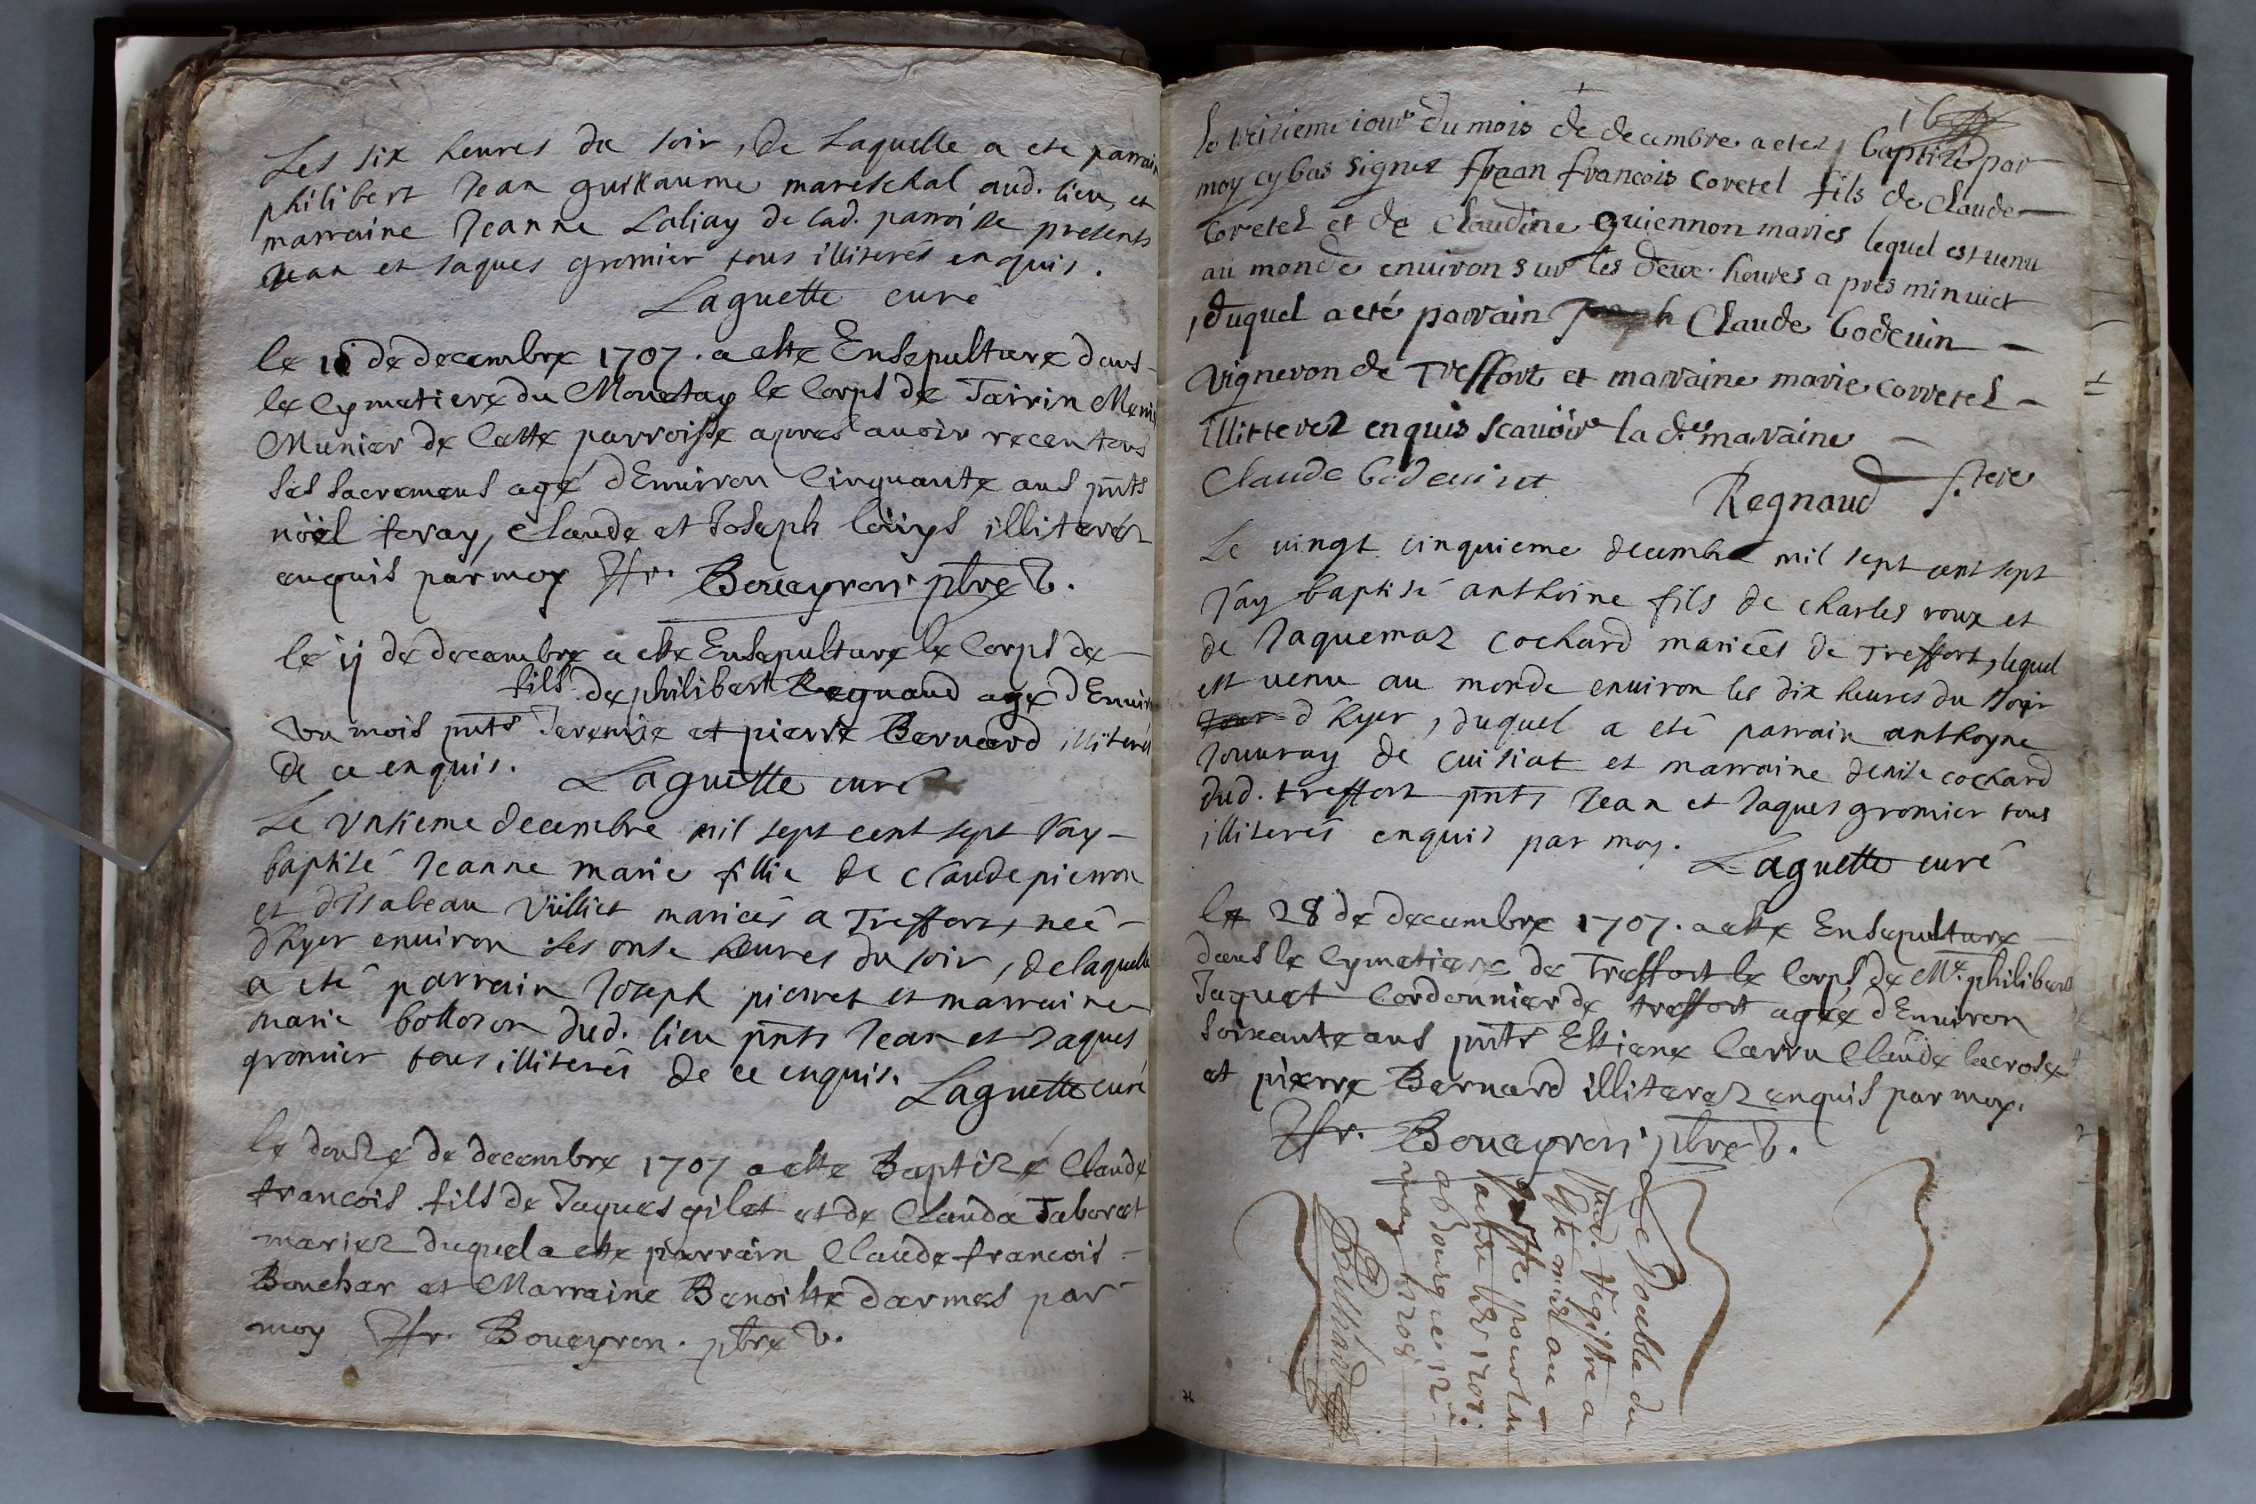 Les six heures du soir, de Laquelle a eté parrain
philibert Jean guillaume mareschal aud. lieu, et
marraine Jeanne Laliay de lad. parroisse presents
Jean et Jaques gromier tous illiterés enquis.
Laguette curé
le 10 de decembre 1707. a esté Ensepulturé dans
le Cymetiere du Monetay le Corps de Tairin
Munier de Cette parroisse apres avoir receu tous
ses sacremens agé d'Environ Cinquante ans pnts
noël foray, Claude et Joseph loüys illiterez
enquis par moy Fr. Boueyron pbre V.
le ij de decembre a esté Ensepulturé le Corps de
fils de philibert Regnaud agé d'Enviro
Un mois pnts Jeremie et pierre Bernard illiterés
de ce enquis. Laguette curé
Le Unsieme decembre mil sept cent sept J'ay
baptisé Jeanne marie fillie de Claude pierron
et d'Isabeau Vuilliet mariés a Treffort, neé
d'hyer environ les onse heures du soir, de laquelle
a eté parrain Joseph pierret et marraine
marie bottoron dud. lieu pnts Jean et Jaques
gromier tous illiterés de ce enquis. Laguette curé
le douze de decembre 1707 a esté Baptizé Claude
francois fils de Jaques gilet et de Clauda Taboret
mariez duquel a esté parrain Claude francois
Bouchar et Marraine Benoiste darmes par
moy Fr. Boueyron. pbre V.
le treizieme iour du mois de decembre a etez baptizé par
moy cy bas signez Jean francois Coretel fils de Claude
Coretel et de Claudine guiennon mariés lequel est venu
au monde environ sur les deux heures a pres minuict
, duquel a eté parrain Claude Godevin
vigneron de Treffort et maraine marie Corretel
illitterez enquis scavoir la de maraine
Claude Godevint
Regnaud
Le vingt cinquieme decembre mil sept cent sept
J'ay baptisé anthoine fils de charles roux et
de Jaquemaz Cochard marieés de Treffort, lequel
est venu au monde environ les dix heures du soir
d'hyer, duquel a eté parrain anthoyne
Jouuray de Cuisiat et marraine denise cochard
dud. treffort pnts Jean et Jaques gromier tous
illiterés enquis par moy. Laguette curé
le 28 de decembre 1707. a esté Ensepulturé
dans le Cymetiere de Treffort le Corps de Me. philibert
Jaquet Cordonnier de treffort agée d'Environ
soixante ans pnts Estiene Carru Claude lacroset
et pierre Bernard illiterez enquis par moy.
Fr. Boueyron pbre V.
Le Double du
pnt Registre a
esté mis au
Greffe
a Bourg ce 12
may 1708